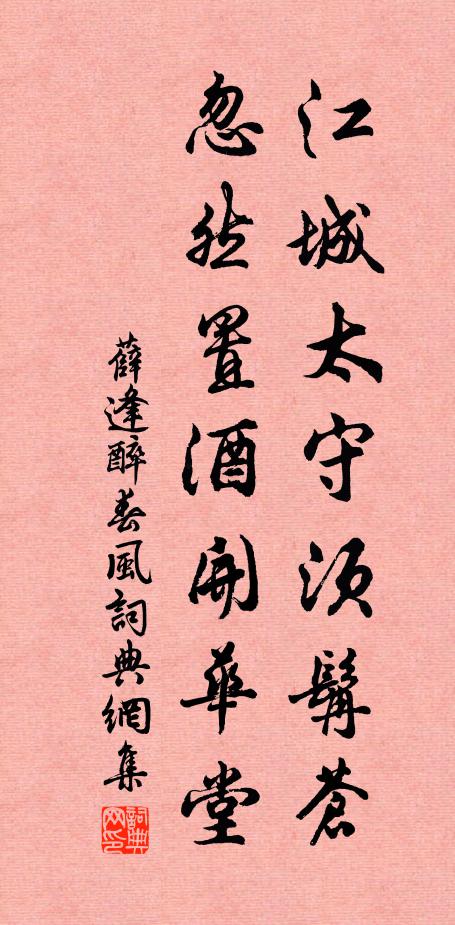 江城太守须髯蒼
忽然置酒開華堂
薛逢醉春風詞典網集
詞典
网印